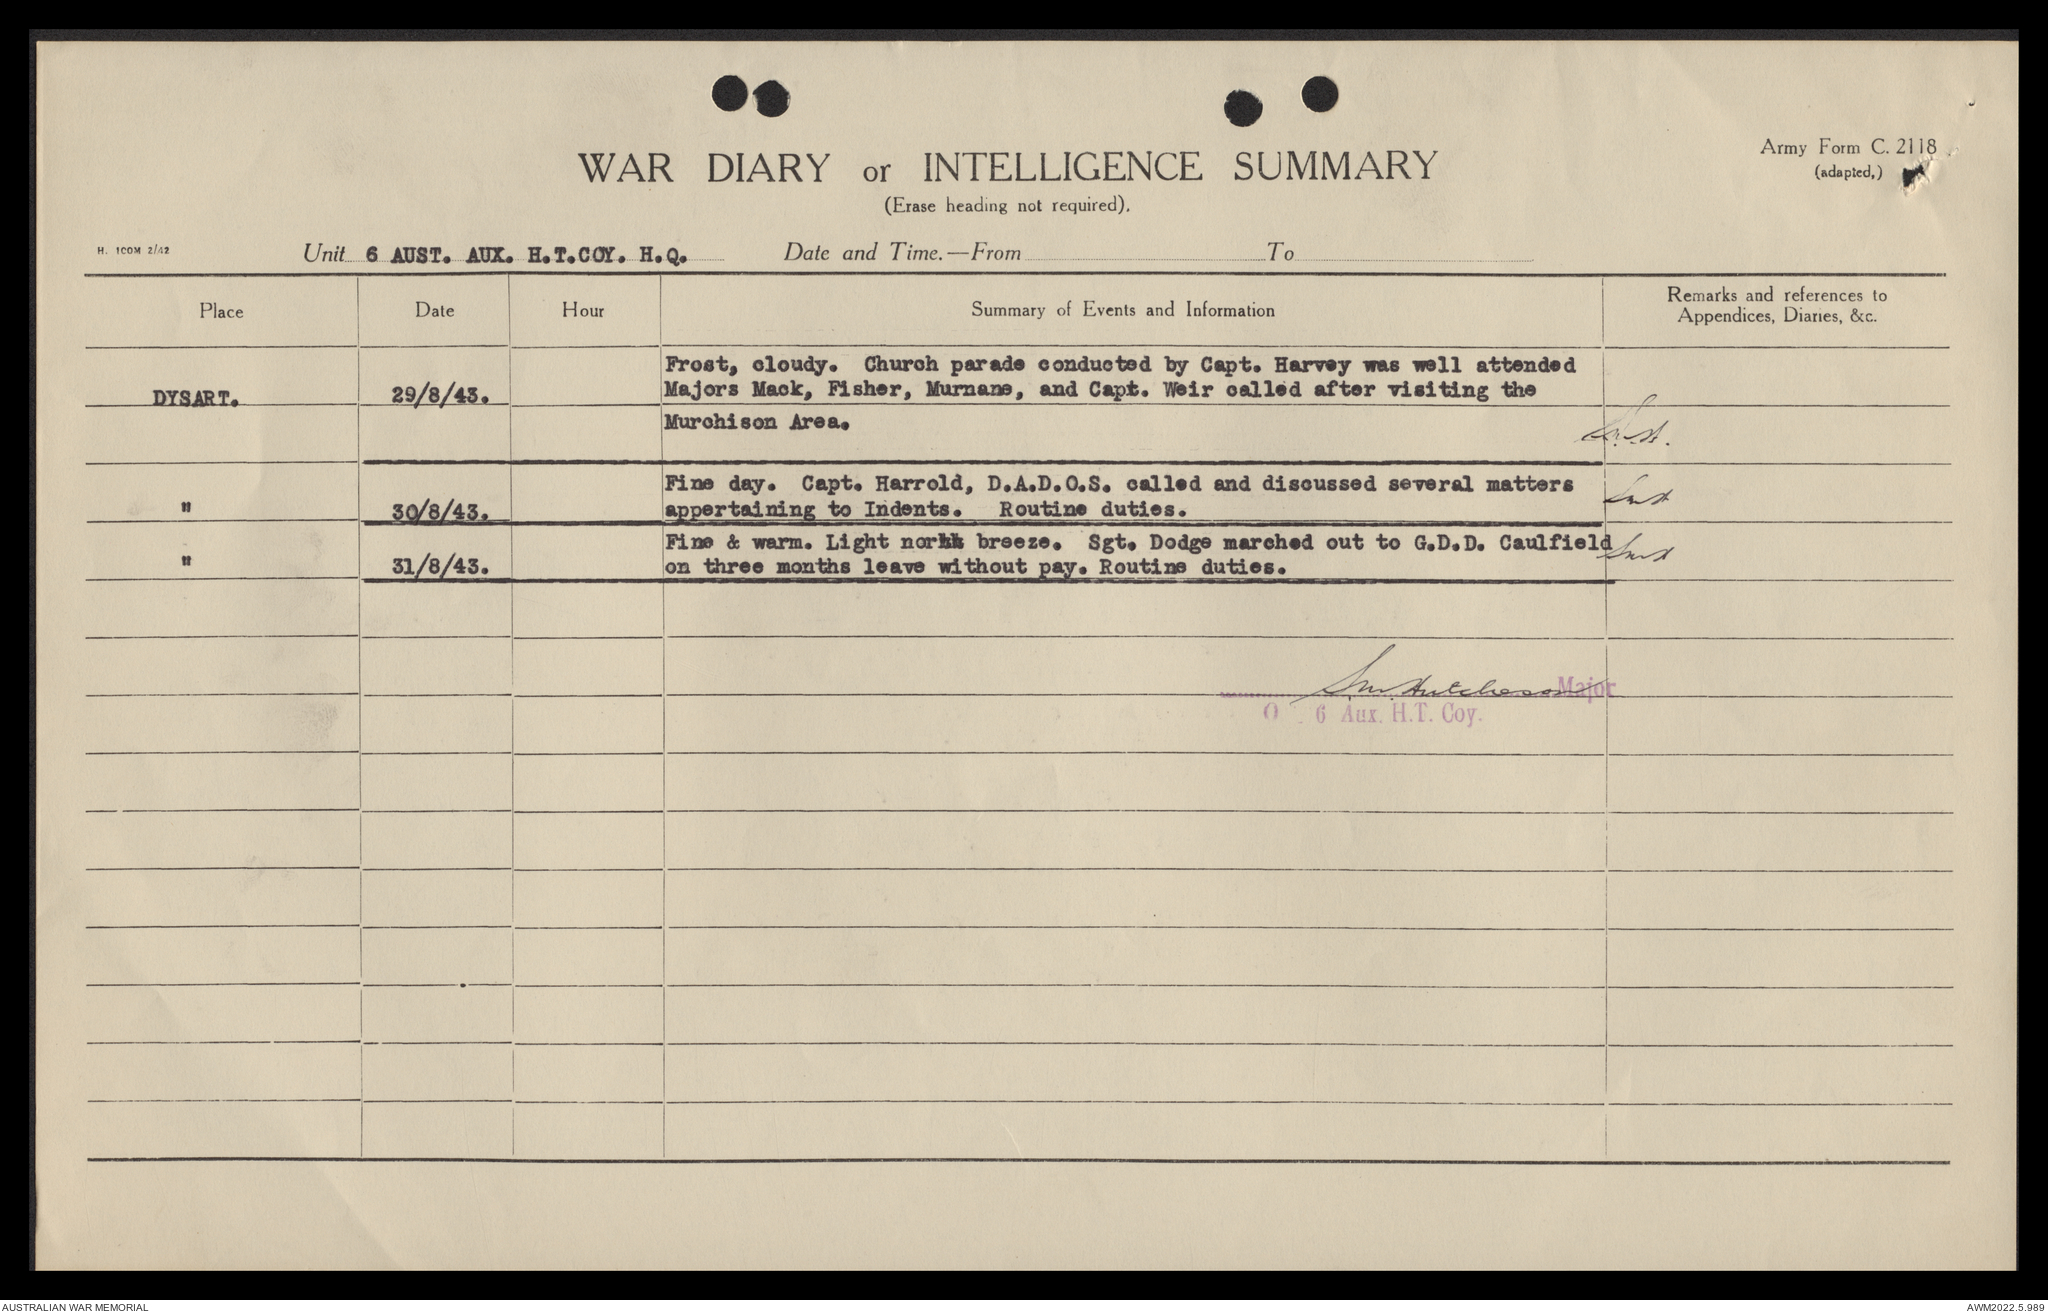 Army Form C. 2118
(adapted,)
WAR DIARY or INTELLIGENCE SUMMARY
(Erase heading not required).
H. 100M 2/42
Unit 6 AUST. AUX. H.T.COY. H.Q. Date and Time.—From To
Place Date Hour Summary of Events and Information Remarks and references to
Appendices, Diaries, &c.
Frost, cloudy. Church parade conducted by Capt. Harvey was well attended
DYSART. 29/8/43. Majors Mack, Fisher, Murnane, and Capt. Weir called after visiting the
Murchison Area.
Fine day. Capt. Harrold, D.A.D.O.S. called and discussed several matters
" 30/8/43. appertaining to Indents. Routine duties.
Fine & warm. Light north breeze. Sgt. Dodge marched out to G.D.D. Caulfield
" 31/8/43. on three months leave without pay. Routine duties.
Hutcheson Major
O 6 Aux. H.T. Coy.
AUSTRALIAN WAR MEMORIAL AWM2022.5.989